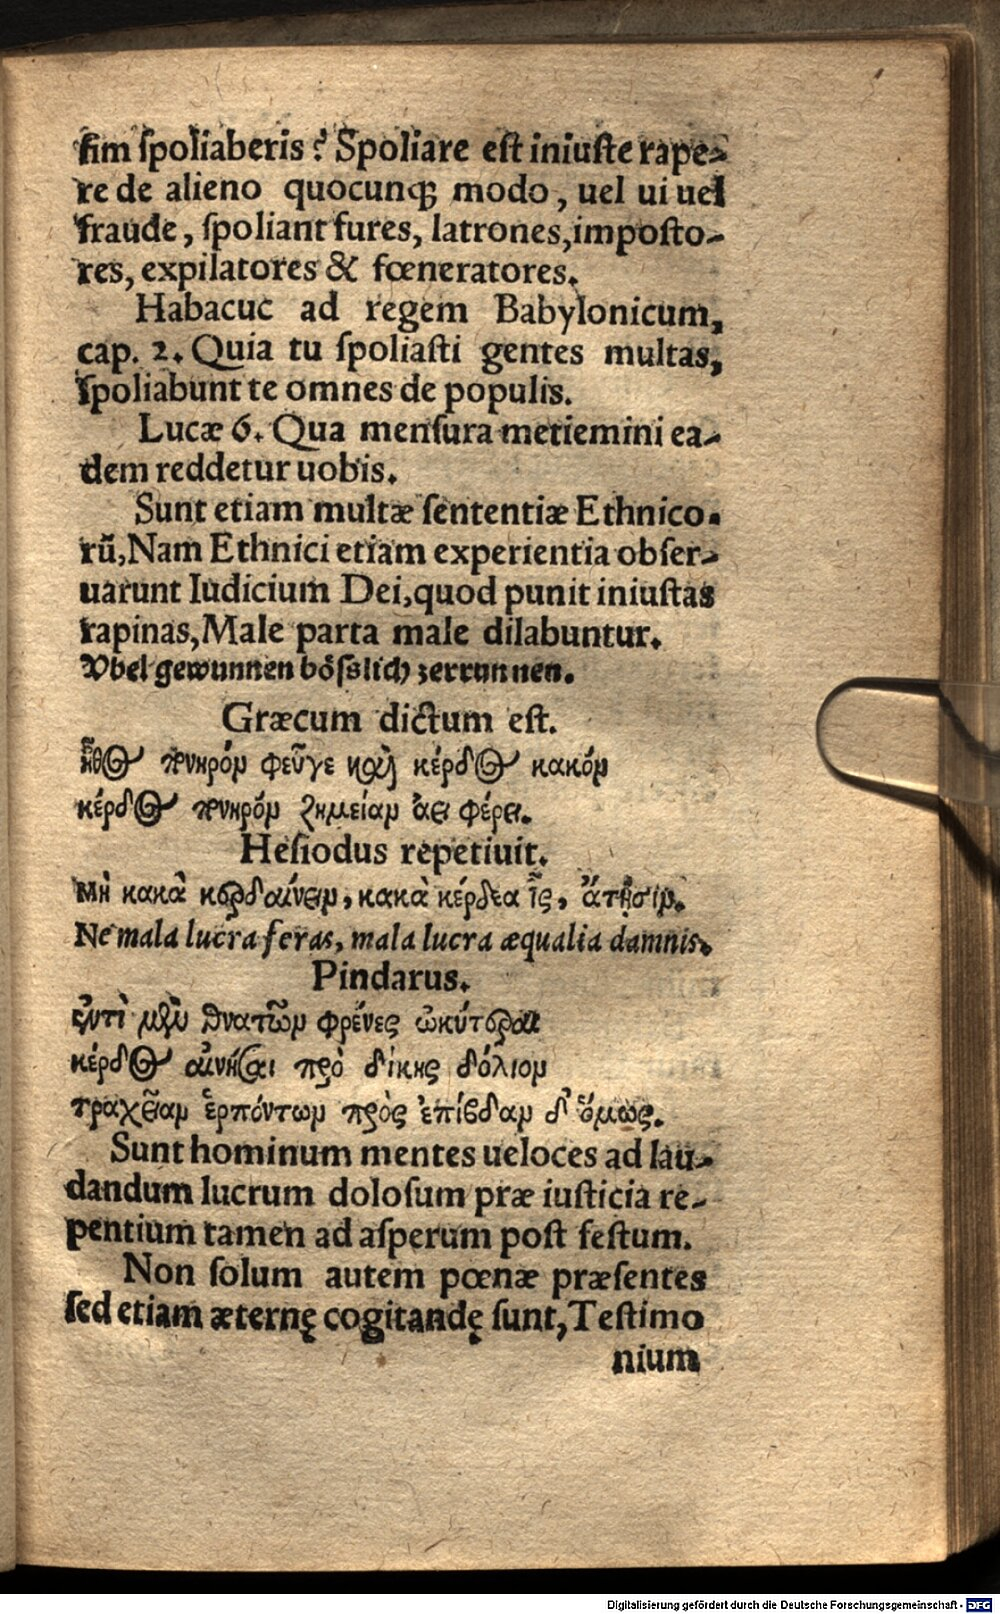 sim spoliaberis? Spoliare est iniuste rape-
re de alieno quocunq; modo, uel ui uel
fraude, spoliant fures, latrones, imposto-
res, expilatores & fœneratores.
Habacuc ad regem Babylonicum,
cap. 2. Quia tu spoliasti gentes multas,
spoliabunt te omnes de populis.
Lucæ 6. Qua mensura metiemini ea-
dem reddetur uobis.
Sunt etiam multæ sententiæ Ethnico-
rũ, Nam Ethnici etiam experientia obser-
uarunt Iudicium Dei, quod punit iniustas
rapinas, Male parta male dilabuntur.
Vbel gewunnen bösslich zerrunnen.
Græcum dictum est.
ἦθος πονηρόν φεῦγε καὶ κέρδος κακόν
κέρδος πονηρόν ζημείαν ἀει φέρει.
Hesiodus repetiuit.
Μὴ κακὰ κερδαίνειν, κακὰ κέρδεα ἶς, ἄτῃσιν.
Ne mala lucra feras, mala lucra æqualia damnis.
Pindarus.
ἐντὶ μὲν θνατῶν φρένες ὠκύτεραι
κέρδος αἰνῆσαι πρὸ δίκης δόλιον
τραχεῖαν ἑρπόντων πρὸς ἐπίβδαν δ' ὅμως.
Sunt hominum mentes ueloces ad lau-
dandum lucrum dolosum præ iusticia re-
pentium tamen ad asperum post festum.
Non solum autem pœnæ præsentes
sed etiam æternę cogitandę sunt, Testimo
nium
Digitalisierung gefördert durch die Deutsche Forschungsgemeinschaft - DFG